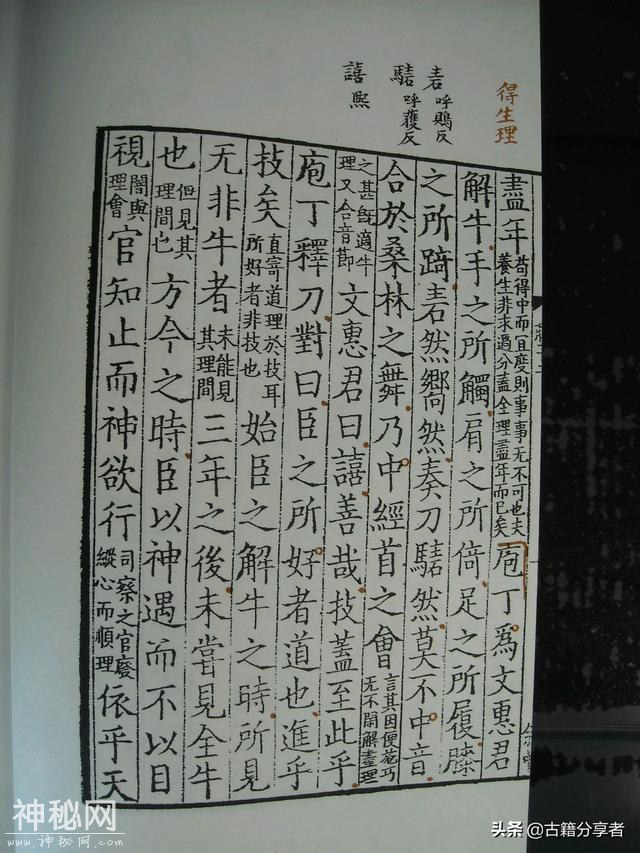 得生理
砉呼鵙反
騞呼獲反
譆熙
盡年苟得中而宜度則事事无不可也夫養生非求過分蓋全理盡年而已矣庖丁爲文惠君
解牛手之所觸肩之所倚足之所履膝
之所踦砉然嚮然奏刀騞然莫不中音
合於桑林之舞乃中經首之會言其因便施巧无不閑解盡理
之甚既適牛理又合音節文惠君曰譆善哉技蓋至此乎
庖丁釋刀對曰臣之所好者道也進乎
技矣直寄道理於技耳所好者非技也始臣之解牛之時所見
无非牛者未能見其理間三年之後未嘗見全牛
也但見其理間也方今之時臣以神遇而不以目
視闇與理會官知止而神欲行司察之官廢縱心而順理依乎天
神秘网
www.shenmi.com.cn
头条 @古籍分享者